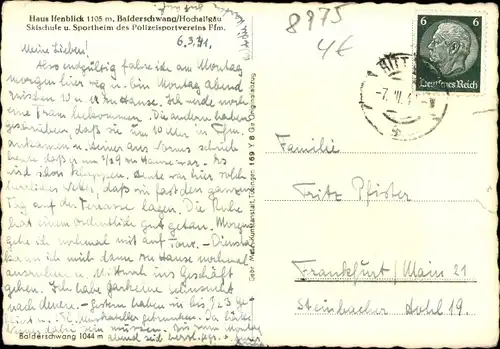 Haus Ifenblick 1105 m, Balderschwang/Hochallgäu
Skischule u. Sportheim des Polizeisportvereins Ffm.
6.3.41.
Meine Lieben!
Also endgültig fahre ich am Montag
morgen hier weg u. bin Montag abend
zwischen 10 u. 11 zu Hause. Ich werde noch
eine Tram bekommen. Die anderen haben
geschrieben, daß sie um 10 Uhr in Ffm.
ankamen u. einer aus Worms schrieb
heute daß er um 1/2 9 zu Hause war. Es
wird schon klappen. Heute war hier solch
herrliches Wetter, daß wir fast den ganzen
Tag auf der Terrasse lagen. Die Ruhe
hat einem ordentlich gut getan. Morgen
gehe ich nochmal mit auf Tour. - Dienstag
kann ich mich dann zu Hause nochmal
ausruhen u. Mittwoch ins Geschäft
gehen. Ich habe gar keine Sehnsucht
nach denen. - Gestern haben wir bis
Balderschwang 1044 m
169 Y 8 Ges. Originalabzug
8975
4€
6 6
Deutsches Reich
-7. III. 4
Familie
Fritz Pfister
Frankfurt/Main 21
Steinbacher Hohl 19.